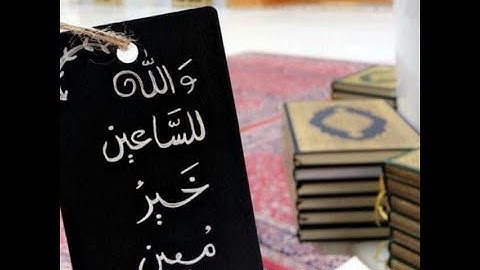 وَاللّٰه
للسَّاعين
خَيرُ
مُعين